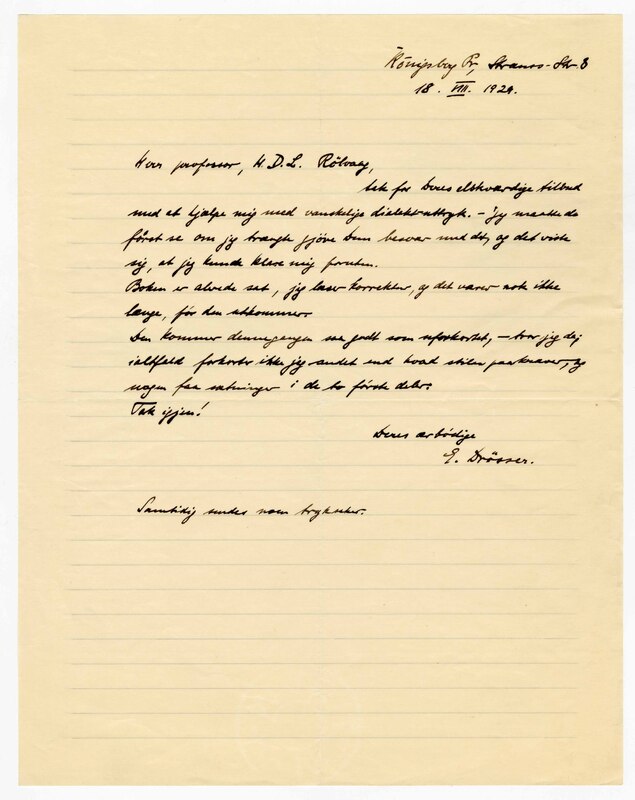 Königsberg Pr, Strauss-Str. 8
18. VIII. 1929.
Herr professor, H. D. L. Rölvaag,
tak for Deres elskværdige tilbud
med at hjælpe mig med vanskelige dialektuttryk. – Jeg maatte da
först se om jeg trængte gjöre Dem besvær med det, og det viste
sig, at jeg kunde klare mig foruten.
Boken er alrede sat, jeg læser korrektur, og det varer nok ikke
længe, för den utkommer.
Den kommer dennegangen saa godt som uforkortet, – tror jeg da;
ialtfald forkorter ikke jeg andet end hvad stilen paakræver, og
nogen faa sætninger i de to förste deler.
Tak igjen!
Deres ærbödige
E. Drösser.
Samtidig sendes noen tryksaker.